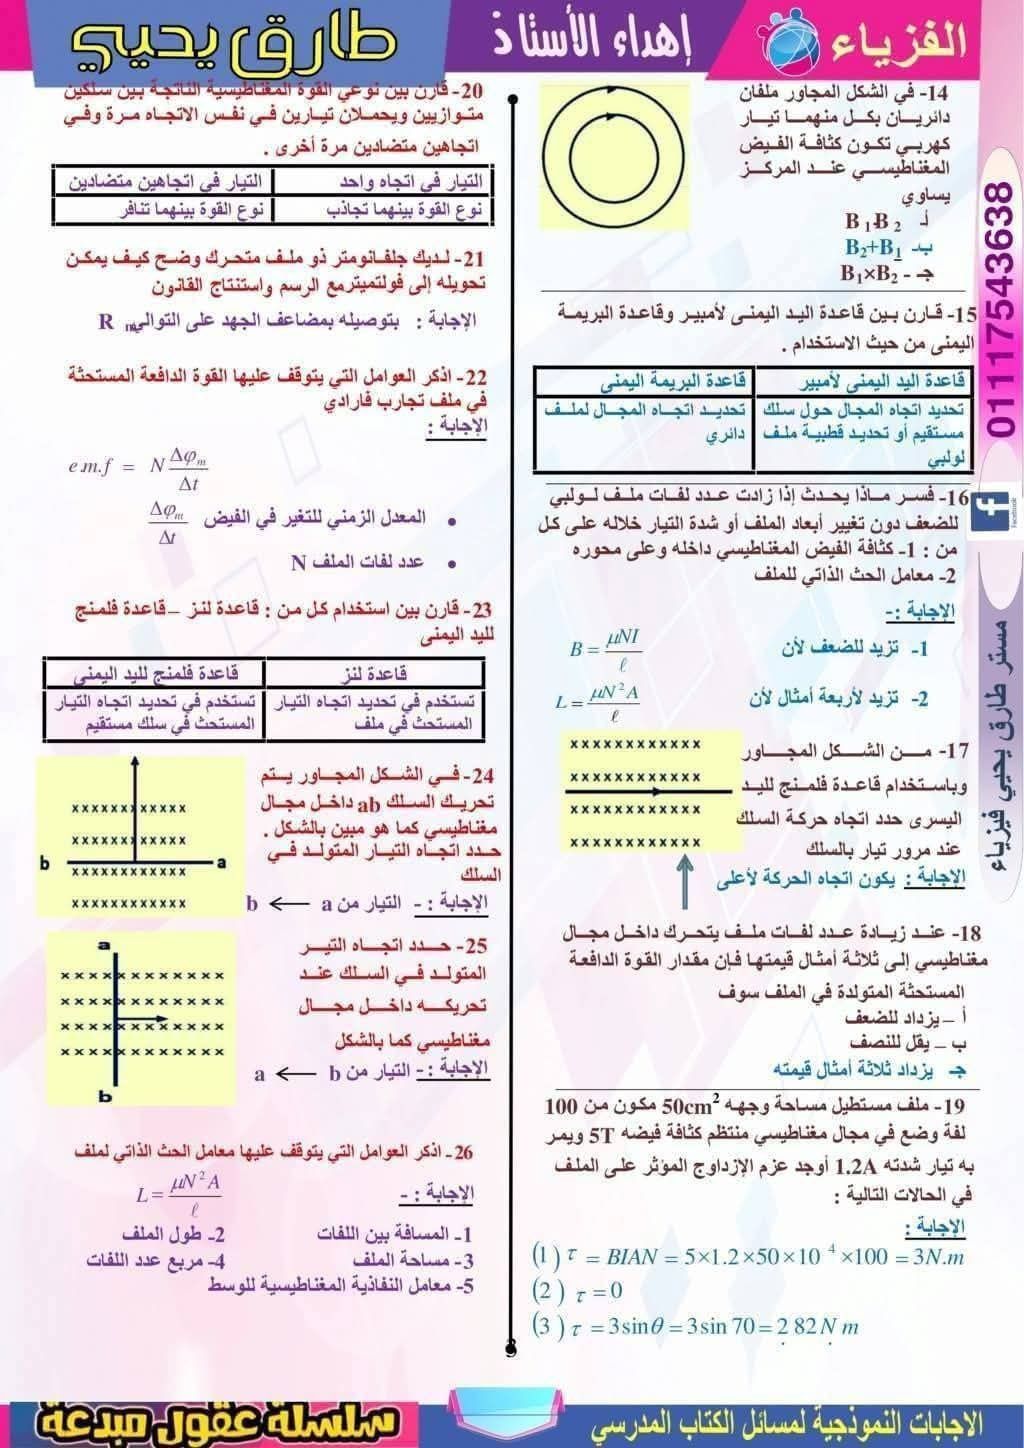 الفزياء
إهداء الأستاذ
طارق يحيي
14- في الشكل المجاور ملفان
دائريان بكل منهما تيار
كهربي تكون كثافة الفيض
المغناطيسي عند المركز
يساوي
أ- B1-B2
ب- B2+B1
جـ - B1×B2
15- قارن بين قاعدة اليد اليمنى لأمبير وقاعدة البريمة
اليمنى من حيث الاستخدام .
قاعدة اليد اليمنى لأمبير قاعدة البريمة اليمنى
تحديد اتجاه المجال حول سلك تحديد اتجاه المجال لملف
مستقيم أو تحديد قطبية ملف دائري
لولبي
16- فسر ماذا يحدث إذا زادت عدد لفات ملف لولبي
للضعف دون تغيير أبعاد الملف أو شدة التيار خلاله على كل
من : 1- كثافة الفيض المغناطيسي داخله وعلى محوره
2- معامل الحث الذاتي للملف
الإجابة :-
1- تزيد للضعف لأن B = μNI / ℓ
2- تزيد لأربعة أمثال لأن L = μN² A / ℓ
17- من الشكل المجاور
وباستخدام قاعدة فلمنج لليد
اليسرى حدد اتجاه حركة السلك
عند مرور تيار بالسلك
الإجابة : يكون اتجاه الحركة لأعلى
x x x x x x x x x x x x
x x x x x x x x x x x x
x x x x x x x x x x x x
x x x x x x x x x x x x
18- عند زيادة عدد لفات ملف يتحرك داخل مجال
مغناطيسي إلى ثلاثة أمثال قيمتها فإن مقدار القوة الدافعة
المستحثة المتولدة في الملف سوف
أ – يزداد للضعف
ب – يقل للنصف
جـ- يزداد ثلاثة أمثال قيمته
19- ملف مستطيل مساحة وجهه 50cm² مكون من 100
لفة وضع في مجال مغناطيسي منتظم كثافة فيضه 5T ويمر
به تيار شدته 1.2A أوجد عزم الإزدواج المؤثر على الملف
في الحالات التالية :
الإجابة :
(1) τ = BIAN = 5×1.2×50×10 4 ×100 = 3N.m
(2) τ = 0
(3) τ = 3sinθ = 3sin 70 = 2.82 N.m
20- قارن بين نوعي القوة المغناطيسية الناتجة بين سلكين
متوازيين ويحملان تيارين في نفس الاتجاه مرة وفي
اتجاهين متضادين مرة أخرى .
التيار في اتجاه واحد التيار في اتجاهين متضادين
نوع القوة بينهما تجاذب نوع القوة بينهما تنافر
21- لديك جلفانومتر ذو ملف متحرك وضح كيف يمكن
تحويله إلى فولتميترمع الرسم واستنتاج القانون
الإجابة : بتوصيله بمضاعف الجهد على التوالي R
22- اذكر العوامل التي يتوقف عليها القوة الدافعة المستحثة
في ملف تجارب فارادي
الإجابة :
e.m.f = N Δφm / Δt
• المعدل الزمني للتغير في الفيض Δφm / Δt
• عدد لفات الملف N
23- قارن بين استخدام كل من : قاعدة لنز – قاعدة فلمنج
لليد اليمنى
قاعدة لنز قاعدة فلمنج لليد اليمني
تستخدم في تحديد اتجاه التيار تستخدم في تحديد اتجاه التيار
المستحث في ملف المستحث في سلك مستقيم
24- في الشكل المجاور يتم
تحريك السلك ab داخل مجال
مغناطيسي كما هو مبين بالشكل .
حدد اتجاه التيار المتولد في
السلك
الإجابة :- التيار من a ← b
x x x x x x x x x x x x
x x x x x x x x x x x x
b a
x x x x x x x x x x x x
x x x x x x x x x x x x
25- حدد اتجاه التير
المتولد في السلك عند
تحريكه داخل مجال
مغناطيسي كما بالشكل
الإجابة :- التيار من b ← a
a
x x x x x x x x x x x x
x x x x x x x x x x x x
x x x x x x x x x x x x
x x x x x x x x x x x x
b
26- اذكر العوامل التي يتوقف عليها معامل الحث الذاتي لملف
الإجابة :-
L = μN² A / ℓ
1- المسافة بين اللفات 2- طول الملف
3- مساحة الملف 4- مربع عدد اللفات
5- معامل النفاذية المغناطيسية للوسط
01117543638
Facebook
مستر طارق يحيي فيزياء
الاجابات النموذجية لمسائل الكتاب المدرسي
سلسلة عقول مبدعة